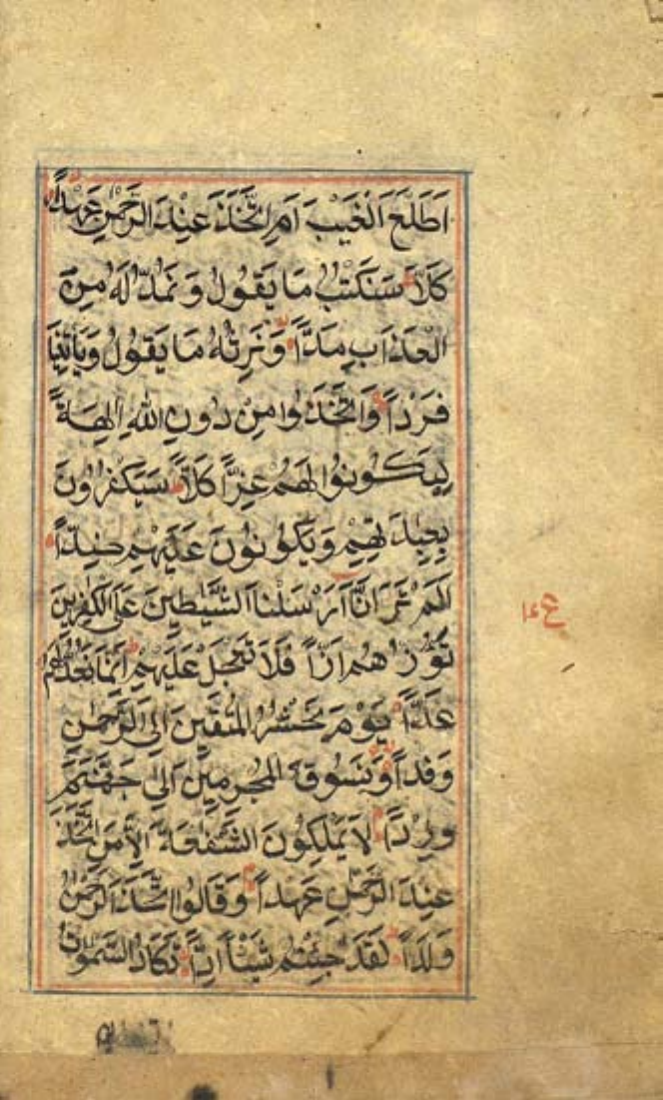 اَطَّلَعَ الْغَيْبَ اَمِ اتَّخَذَ عِنْدَ الرَّحْمٰنِ عَهْدًا
كَلَّا سَنَكْتُبُ مَا يَقُوْلُ وَنَمُدُّ لَهُ مِنَ
الْعَذَابِ مَدًّا وَنَرِثُهُ مَا يَقُوْلُ وَيَأْتِيْنَا
فَرْدًا وَاتَّخَذُوا مِنْ دُونِ اللّٰهِ اٰلِهَةً
لِيَكُوْنُوْا لَهُمْ عِزًّا كَلَّا سَيَكْفُرُوْنَ
بِعِبَادَتِهِمْ وَيَكُوْنُوْنَ عَلَيْهِمْ ضِدًّا
اَلَمْ تَرَ اَنَّا اَرْسَلْنَا الشَّيٰطِيْنَ عَلَى الْكٰفِرِيْنَ
تَؤُزُّهُمْ اَزًّا فَلَا تَعْجَلْ عَلَيْهِمْ اِنَّمَا نَعُدُّ لَهُمْ
عَدًّا يَوْمَ نَحْشُرُ الْمُتَّقِيْنَ اِلَى الرَّحْمٰنِ
وَفْدًا وَنَسُوْقُ الْمُجْرِمِيْنَ اِلٰى جَهَنَّمَ
وِرْدًا لَا يَمْلِكُوْنَ الشَّفٰعَةَ اِلَّا مَنِ اتَّخَذَ
عِنْدَ الرَّحْمٰنِ عَهْدًا وَقَالُوا اتَّخَذَ الرَّحْمٰنُ
وَلَدًا لَقَدْ جِئْتُمْ شَيْئًا اِدًّا تَكَادُ السَّمٰوٰتُ